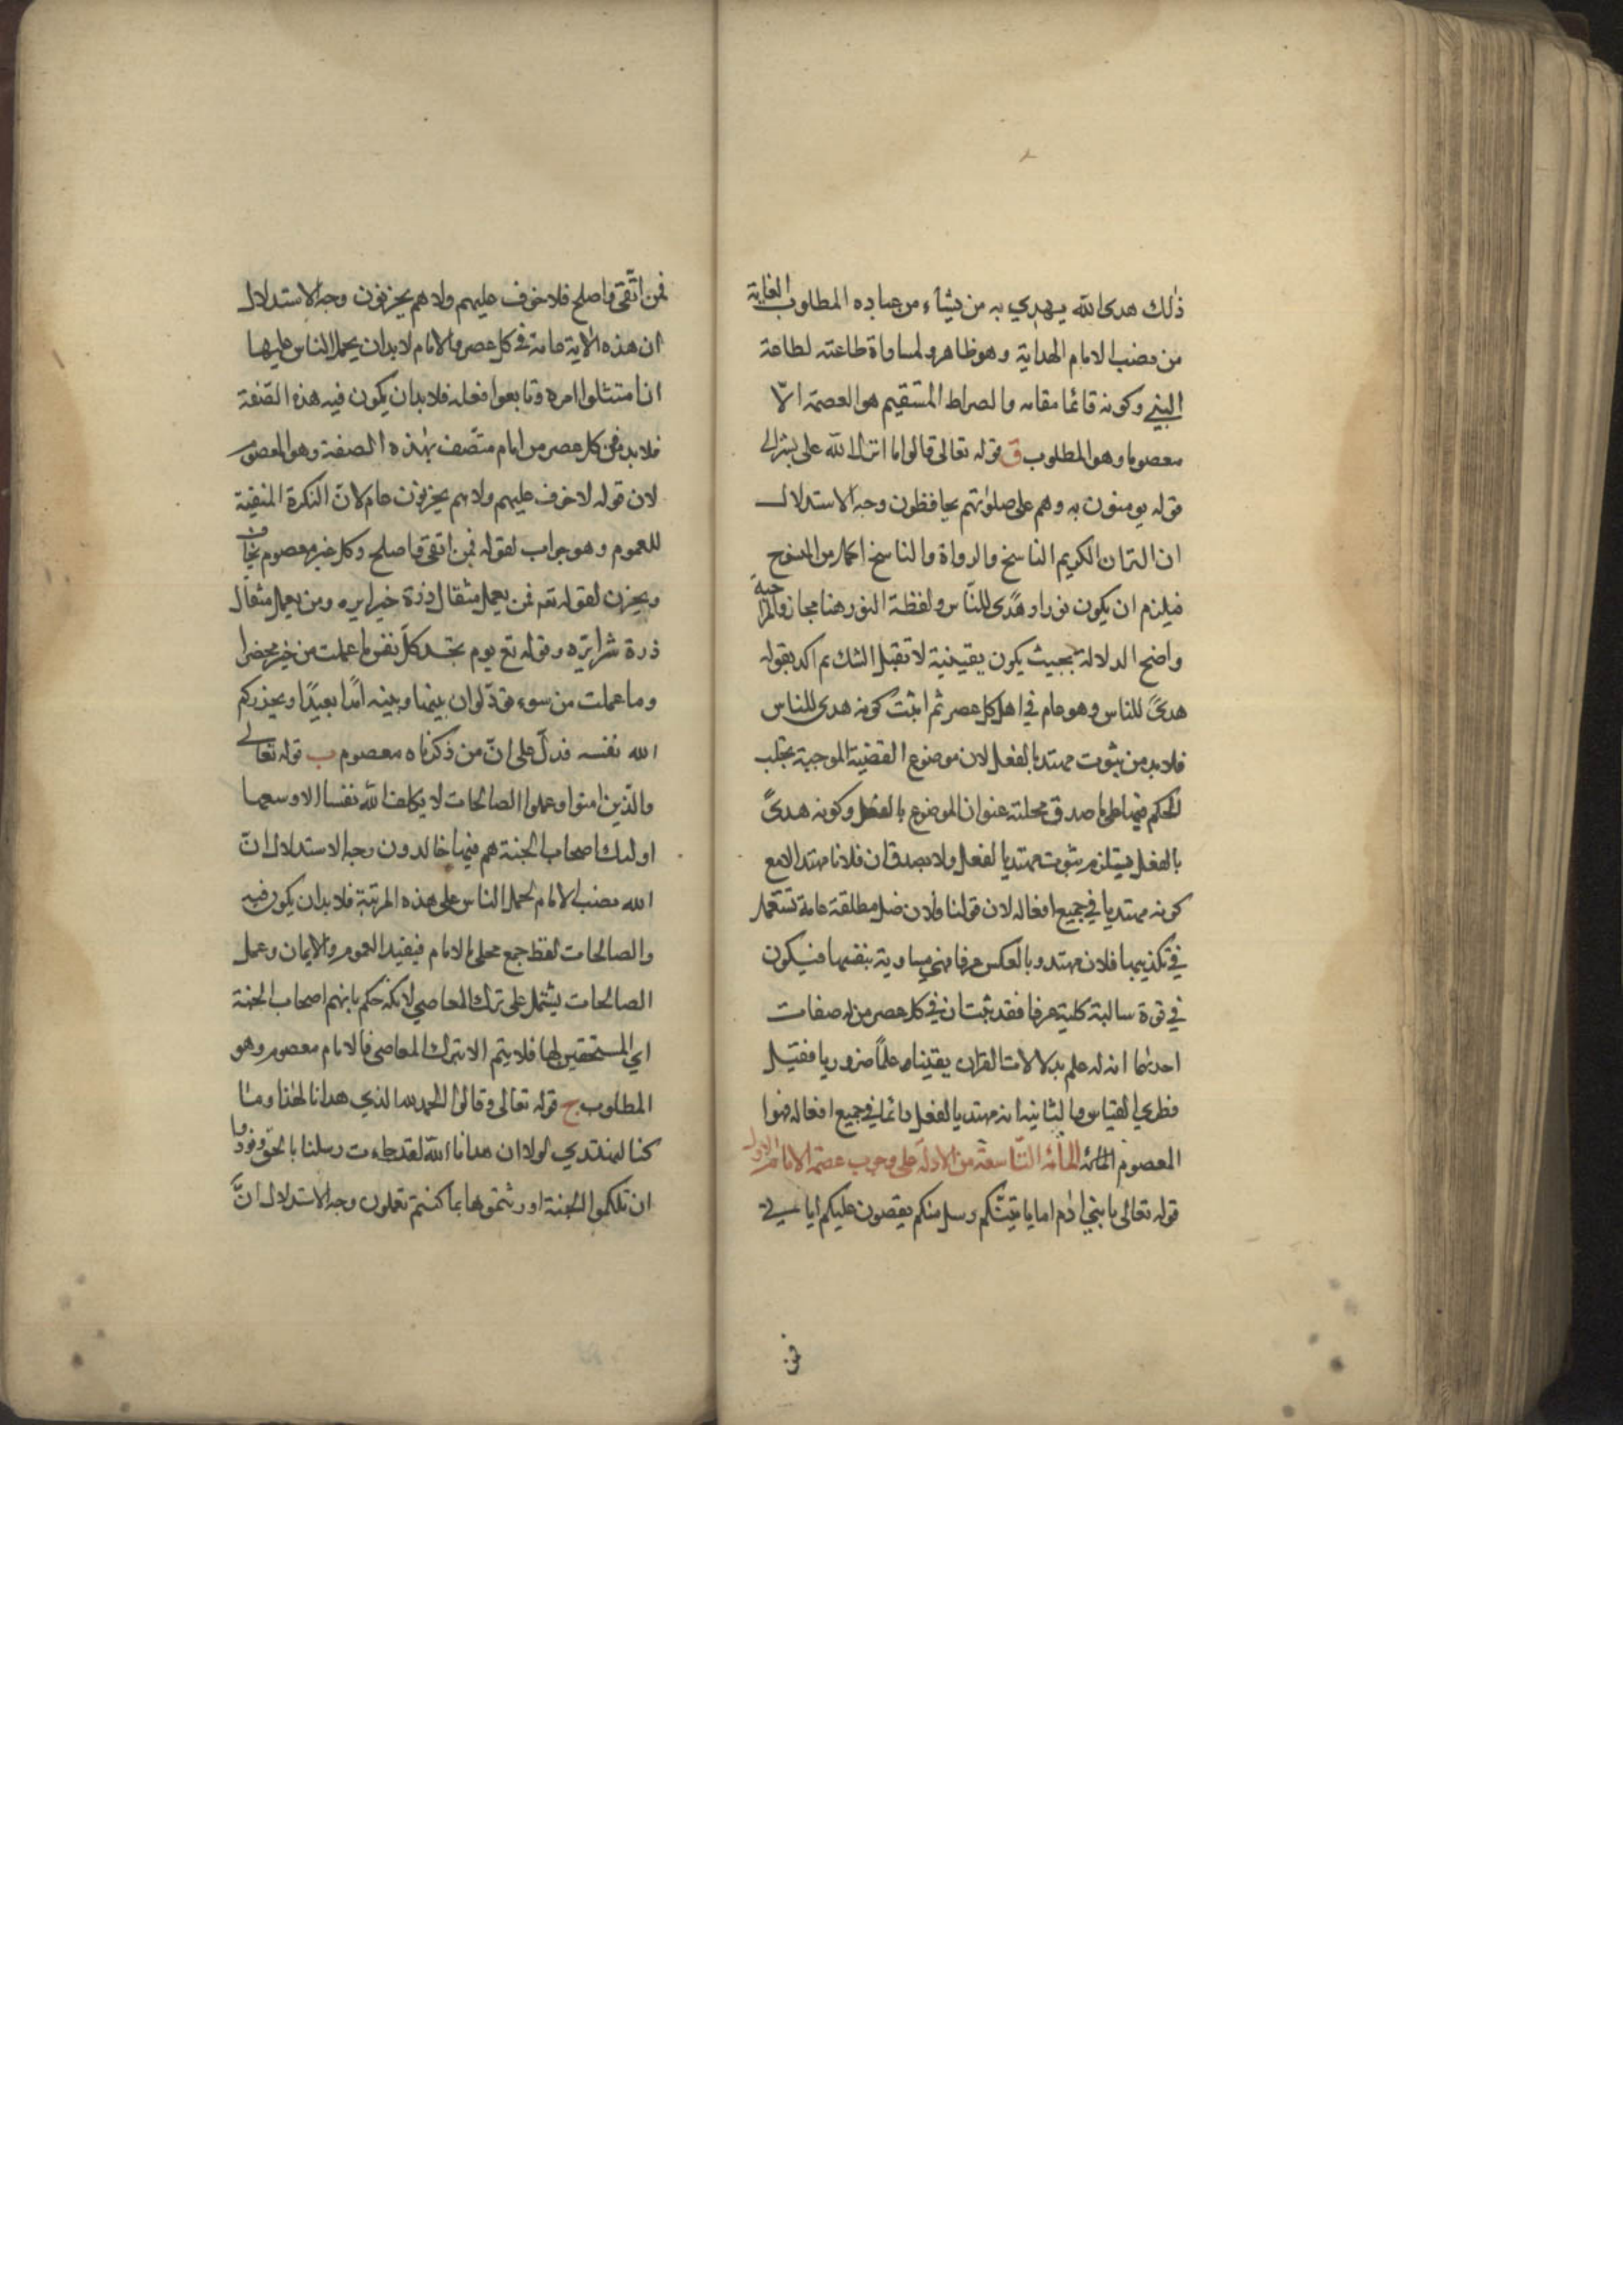 ذلك هدى الله يهدي به من يشاء من عباده المطلوب الغاية
من نصب الامام الهداية وهو ظاهر ولمساواة طاعته لطاعة
النبي وكونه قائما مقامه والصراط المستقيم هو العصمة الّا
معصوما وهو المطلوب ق قوله تعالى قالوا ما انزل الله على بشر الى
قوله يومنون به وهم على صلوتهم يحافظون وجه الاستدلال
ان الكريم الناسخ والرواة والناسخ من
فيلزم ان يكون نورا وهدًى للنّاس ولفظة النور هنا مجاز والمراد به
واضح الدلالة بحيث يكون يقينية لا تقبل الشك ثم اكد بقوله
هدىً للناس وهو عام في اهل كل عصر ثم اثبت كونه هدى للناس
فلابد من ثبوت مهتد بالفعل لان موضوع القضية الموجبة يجب
الحكم فيها على ما صدق عليه عنوان الموضوع بالفعل وكونه هدىً
بالفعل يستلزم ثبوت مهتد بالفعل ولا يصدق ان فلانا مهتد الا مع
كونه مهتديا في جميع افعاله لان قولنا فلان ضل مطلقة عامة تستعمل
في تكذيبها فلان مهتد وبالعكس عرفا فهي مساوية نقيضها فيكون
في قوة سالبة كلية عرفا فقد ثبت ان في كل عصر من له صفات
احديهما انه له علم بدلالات القران يقينا وعلماً ضروريا فقيل
فطري القياس والثانية انه مهتد بالفعل دائما في جميع افعاله فهو
المعصوم المائة التّاسعة من الادلة على وجوب عصمة الامام الاول
قوله تعالى يا بني ادم اما ياتينّكم رسل منكم يقصون عليكم اياتي
فمن
فمن اتّقى واصلح فلا خوف عليهم ولا هم يحزنون وجه الاستدلال
ان هذه الاية عامة في كل عصر والامام لابد ان يحمل الناس عليها
ان امتثلوا امره وتابعوا فعله فلابد ان يكون فيه هذه الصّفة
فلابد في كل عصر من امام متّصف بهذه الصفة وهو المعصوم
لان قوله لا خوف عليهم ولا هم يحزنون عام لانّ النكرة المنفية
للعموم وهو جواب لقوله فمن اتقى واصلح وكل غير معصوم يخاف
ويحزن لقوله تع فمن يعمل مثقال ذرة خيرا يره ومن يعمل مثقال
ذرة شرا يره وقوله تع يوم تجد كلّ نفس ما عملت من خير محضرا
وما عملت من سوء تودّ لو ان بينها وبينه امدًا بعيدًا ويحذركم
الله نفسه فدلّ على انّ من ذكرناه معصوم ب قوله تعالى
والّذين امنوا وعملوا الصالحات لا يكلف الله نفسا الا وسعها
اولئك اصحاب الجنة هم فيها خالدون وجه الاستدلال انّ
الله نصب الامام لحمل الناس على هذه المرتبة فلابد ان يكون فيه
والصالحات لفظ جمع محلى باللام فيفيد العموم والايمان وعمل
الصالحات يشتمل على ترك المعاصي لانه حكم بانهم اصحاب الجنة
اي المستحقين لها فلا يتم الا بترك المعاصي فالامام معصوم وهو
المطلوب ج قوله تعالى وقالوا الحمد لله الذي هدانا لهذا وما
كنا لنهتدي لولا ان هدانا الله لقد جاءت رسلنا بالحق ونودوا
ان تلكموا الجنة اورثتموها بما كنتم تعملون وجه الاستدلال انّ